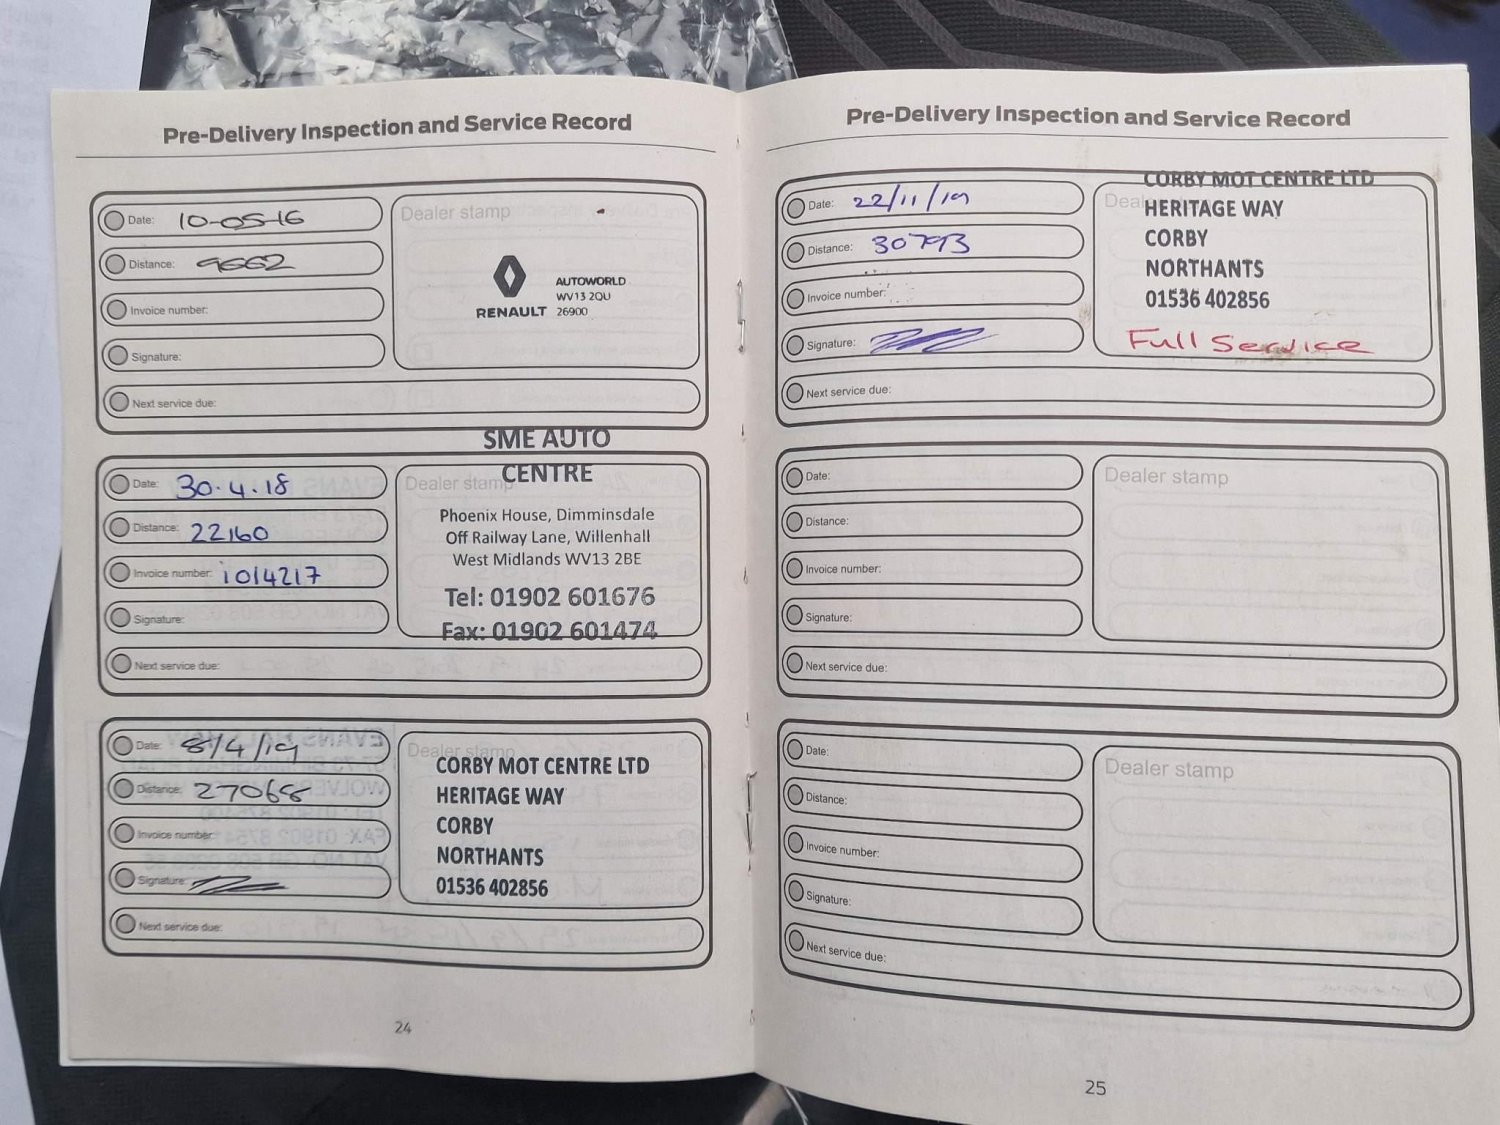 Pre-Delivery Inspection and Service Record
Date: 10-05-16
Distance: 9662
Invoice number:
Signature:
Dealer stamp
RENAULT
AUTOWORLD
WV13 2QU
26900
Next service due:
Date: 30.4.18
Distance: 22160
Invoice number: 1014217
Signature:
Dealer stamp
SME AUTO
CENTRE
Phoenix House, Dimminsdale
Off Railway Lane, Willenhall
West Midlands WV13 2BE
Tel: 01902 601676
Fax: 01902 601474
Next service due:
Date: 8/4/19
Distance: 27068
Invoice number:
Signature:
Dealer stamp
CORBY MOT CENTRE LTD
HERITAGE WAY
CORBY
NORTHANTS
01536 402856
Next service due:
24
Pre-Delivery Inspection and Service Record
Date: 22/11/19
Distance: 30793
Invoice number:
Signature:
CORBY MOT CENTRE LTD
HERITAGE WAY
CORBY
NORTHANTS
01536 402856
Full Service
Next service due:
Date:
Distance:
Invoice number:
Signature:
Dealer stamp
Next service due:
Date:
Distance:
Invoice number:
Signature:
Dealer stamp
Next service due:
25